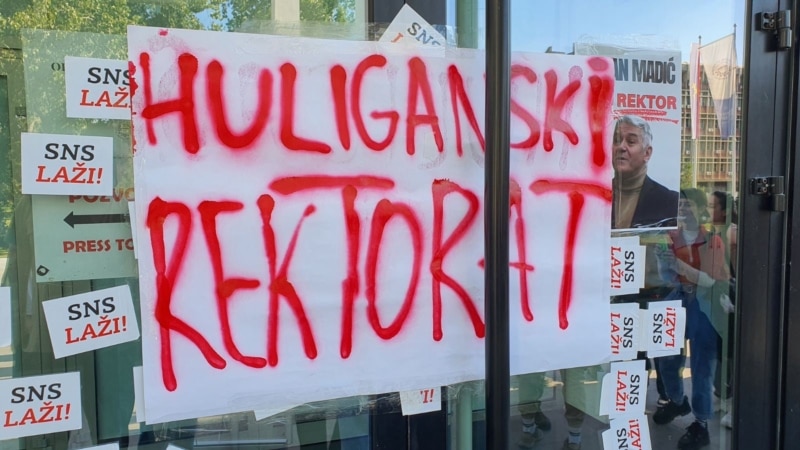 HULIGANSKI
REKTORAT
SNS
SNS
LAŽI!
SNS
LAŽI!
POZVO
PRESS TO
SNS
LAŽI!
SNS
LAŽI!
AN MADIĆ
REKTOR
SNS
LAŽI!
SNS
LAŽI!
SNS
LAŽI!
SNS
LAŽI!
SNS
LAŽI!
!